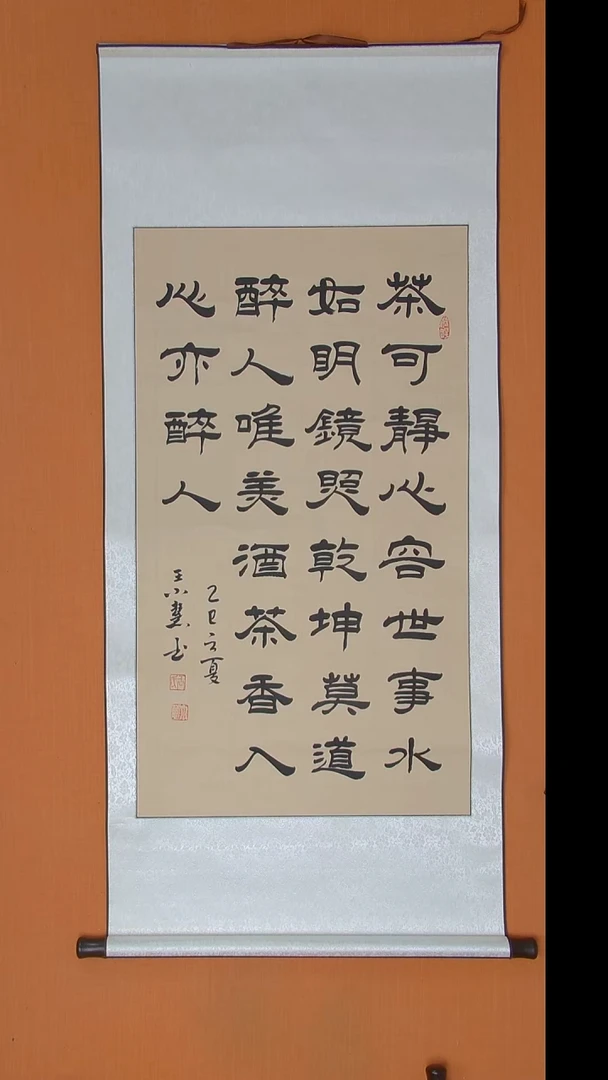 茶可靜心容世事水
如明鏡照乾坤莫道
醉人唯美酒茶香入
心亦醉人
乙巳之夏
王小慧书